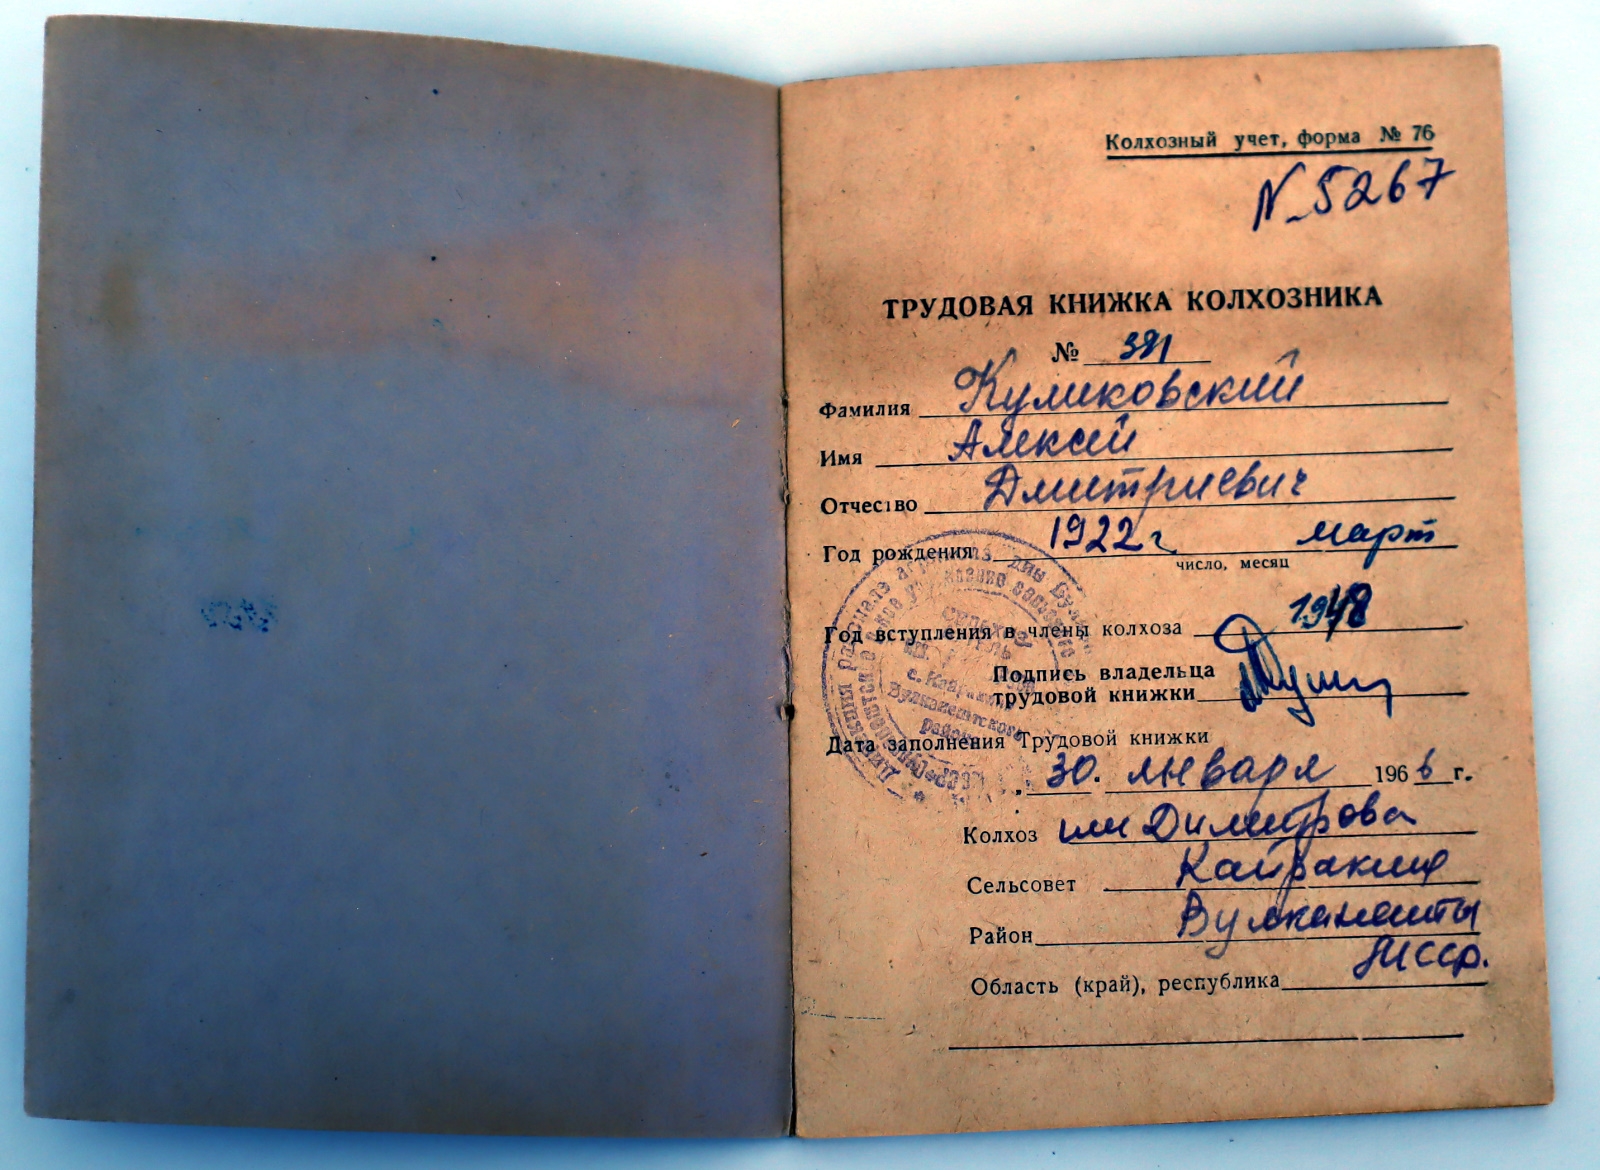 Колхозный учет, форма № 76
N 5267
ТРУДОВАЯ КНИЖКА КОЛХОЗНИКА
№ 381
Фамилия Куликовский
Имя Алексей
Отчество Дмитриевич
Год рождения 1922 г март
число, месяц
Год вступления в члены колхоза 1948
Подпись владельца
трудовой книжки
Дата заполнения Трудовой книжки
30. января 1966 г.
Колхоз им Димитрова
Сельсовет Кайраклия
Район Вулканешты
Область (край), республика МССР.
с. Кайраклия
Вулканештского
района